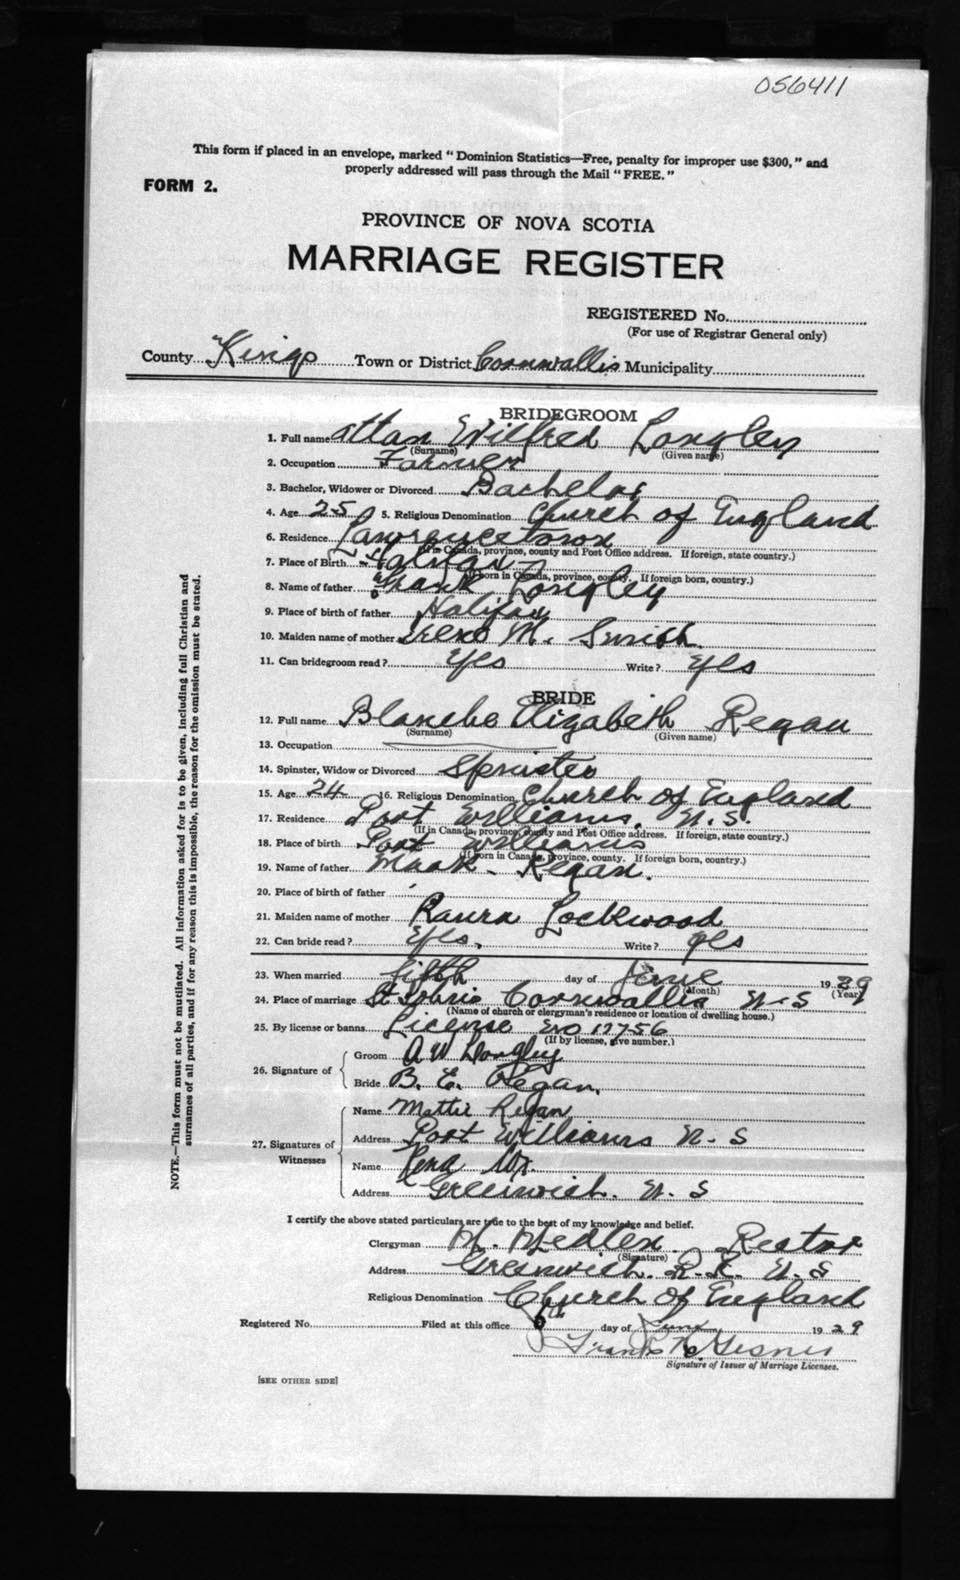 056411
This form if placed in an envelope, marked "Dominion Statistics—Free, penalty for improper use $300," and
properly addressed will pass through the Mail "FREE."
FORM 2.
PROVINCE OF NOVA SCOTIA
MARRIAGE REGISTER
REGISTERED No.
(For use of Registrar General only)
County Kings Town or District Cornwallis Municipality
BRIDEGROOM
1. Full name Wilfred Longley
(Surname) (Given name)
2. Occupation Farmer
3. Bachelor, Widower or Divorced Bachelor
4. Age 25 5. Religious Denomination Church of England
6. Residence Lawrencetown
(If in Canada, province, county and Post Office address. If foreign, state country.)
7. Place of Birth Halifax
(If born in Canada, province, county. If foreign born, country.)
8. Name of father Frank Longley
9. Place of birth of father Halifax
10. Maiden name of mother Irene M. Smith
11. Can bridegroom read? Yes Write? Yes
BRIDE
12. Full name Blanche Elizabeth Regan
(Surname) (Given name)
13. Occupation
14. Spinster, Widow or Divorced Spinster
15. Age 24 16. Religious Denomination Church of England
17. Residence Port Williams, N.S.
(If in Canada, province, county and Post Office address. If foreign, state country.)
18. Place of birth Port Williams
(If born in Canada, province, county. If foreign born, country.)
19. Name of father Mark Regan.
20. Place of birth of father
21. Maiden name of mother Lockwood
22. Can bride read? Yes, Write? yes
23. When married fifth day of June 1929
(Month) (Year)
24. Place of marriage St Johns Cornwallis N-S
(Name of church or clergyman's residence or location of dwelling house.)
25. By license or banns License No 17756
(If by license, give number.)
26. Signature of
Groom A W Longley
Bride B. E. Regan.
27. Signatures of
Witnesses
Name Mattie Regan
Address Port Williams N-S
Name Rena
Address Greenwich. N. S
I certify the above stated particulars are true to the best of my knowledge and belief.
Clergyman Rector
(Signature)
Address Greenwich. N. S
Religious Denomination Church of England
Registered No. Filed at this office 6th day of June 1929
Signature of Issuer of Marriage Licenses.
[SEE OTHER SIDE]
NOTE.—This form must not be mutilated. All information asked for is to be given, including full Christian and
surnames of all parties, and if for any reason this is impossible, the reason for the omission must be stated.